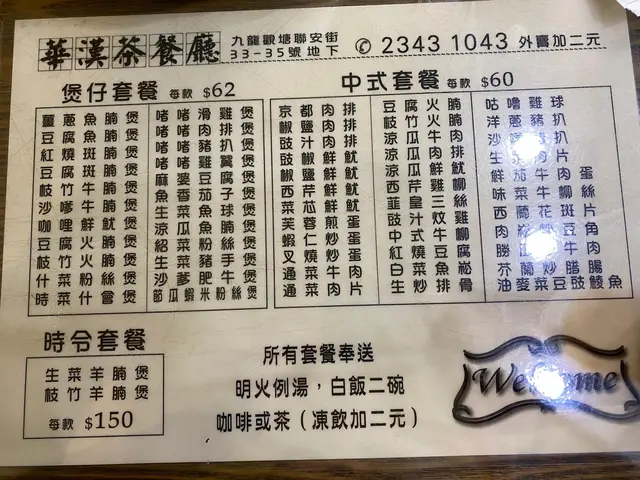 華漢茶餐廳
九龍觀塘聯安街
33-35號地下
✆ 2343 1043 外賣加二元
煲仔套餐 每款 $62
薑蔥魚腩煲
豆腐魚腩煲
紅燒斑腩煲
豆腐斑腩煲
枝竹牛腩煲
沙嗲牛腩煲
咖哩鮮魷煲
豆腐火腩煲
枝竹火腩煲
什菜粉絲煲
時菜什會煲
啫啫滑雞煲
啫啫肉排煲
啫啫豬扒煲
啫啫雞翼煲
麻婆豆腐煲
魚香茄子煲
生菜魚球煲
涼瓜魚腩煲
紹菜粉絲煲
生菜豬手煲
沙爹肥牛煲
節瓜蝦米粉絲煲
中式套餐 每款 $60
京都肉排
椒鹽肉排
豉汁肉排
豉椒鮮魷
椒鹽鮮魷
西芹鮮魷
菜芯鮮魷
芙蓉煎蛋
蝦仁炒蛋
叉燒炒蛋
通菜牛肉
通菜肉片
豆腐火腩
枝竹火腩
涼瓜牛肉
涼瓜肉排
涼瓜鮮魷
西芹雞柳
韮皇三絲
豉汁炆雞
中式牛柳
紅燒豆腐
白菜魚
生炒排骨
咕嚕雞球
洋蔥豬扒
沙 扒
生 肉片
鮮茄牛肉蛋
味菜牛柳絲
西蘭花斑片
肉 豆角
勝瓜 牛肉
芥蘭炒腊腸
油麥菜豆豉鯪魚
時令套餐
生菜羊腩煲
枝竹羊腩煲
每款 $150
所有套餐奉送
明火例湯，白飯二碗
咖啡或茶（凍飲加二元）
Welcome